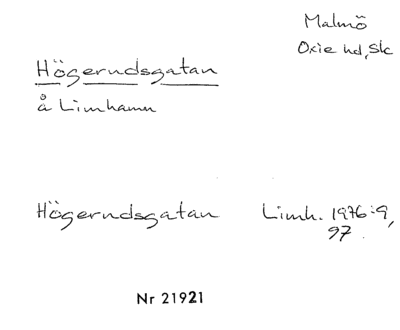 Malmö
Oxie hd, Sk
Högerudsgatan
å Limhamn
Högerudsgatan Limh. 1976:9,
97.
Nr 21921